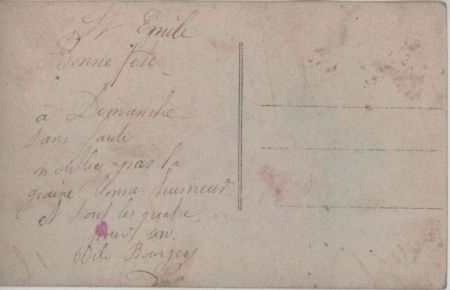 St Emile
Bonne fête
à Dimanche
sans faute
n'oubliez pas la
graine bonne humeur
et tout les quatre
Bourgey